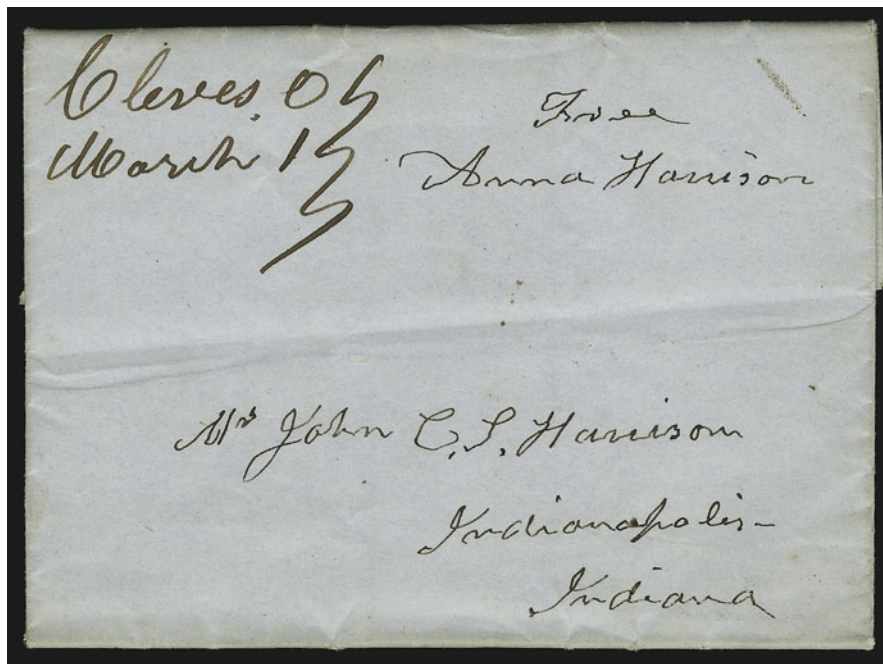 Cleves. O
March 1
Free
Anna Harrison
Mr John C. S. Harrison
Indianapolis-
Indiana